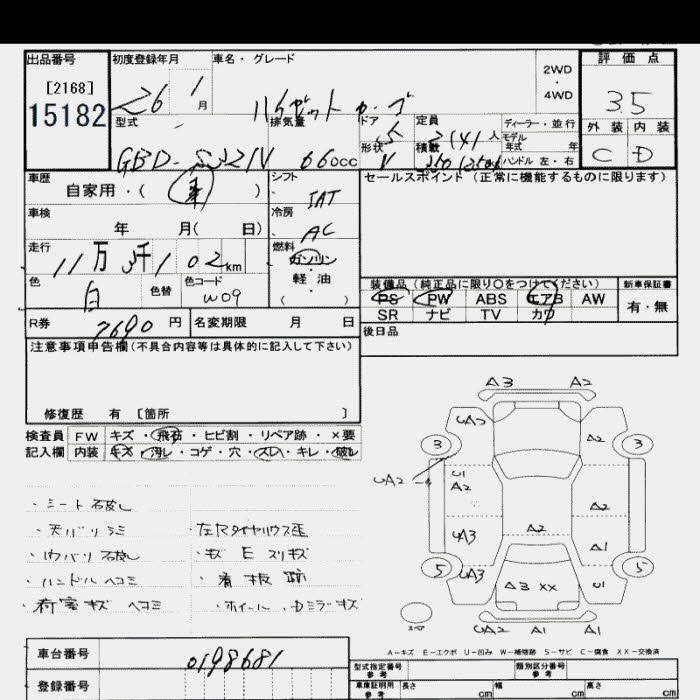 出品番号 初度登録年月 車名・グレード 2WD・4WD 評価点
[2168] 26 1月 ハイゼットカーゴ 35
15182
型式 排気量 ドア 5 定員 2(4)人 ディーラー・並行 外装 内装
GBD-S321V 660cc 形状 V 積載 350(250)kg モデル年式 年 C D
ハンドル 左・右
車歴 シフト セールスポイント(正常に機能するものに限ります)
自家用・( ) IAT
車検 冷房
年 月(日) AC
走行 燃料
11万3千102km ガソリン・軽油
色 色替 色コード ( )
白 W09
装備品(純正品に限り○をつけてください) 新車保証書
PS PW ABS エアB AW 有・無
SR ナビ TV カワ
R券 7690円 名変期限 月 日 後日品
注意事項申告欄(不具合内容等は具体的に記入して下さい)
修復歴 有 [箇所 ]
検査員 FW キズ・飛石・ヒビ割・リペア跡・×要
記入欄 内装 キズ・汚レ・コゲ・穴・スレ・キレ・破レ
・シート破レ
・天バリシミ ・左Rタイヤハウス歪
・ウバリ破レ ・キズ E スリキズ
・ハンドルヘコミ ・看板跡
・荷室キズ ヘコミ ・ホイール・Dミラーキズ
A3 A2
UA2 A2
3 3
UA2
U1
A2 A2
A2
UA3 A1
5 UA3 A3 XX U1 5
UA2 A1 A1
A-キズ E-エクボ U-凹み W-補修跡 S-サビ C-腐食 XX-交換済
車台番号 0198681
登録番号
型式指定番号 参考 類別区分番号 参考
車庫証明用 参考 長さ cm 幅 cm 高さ cm